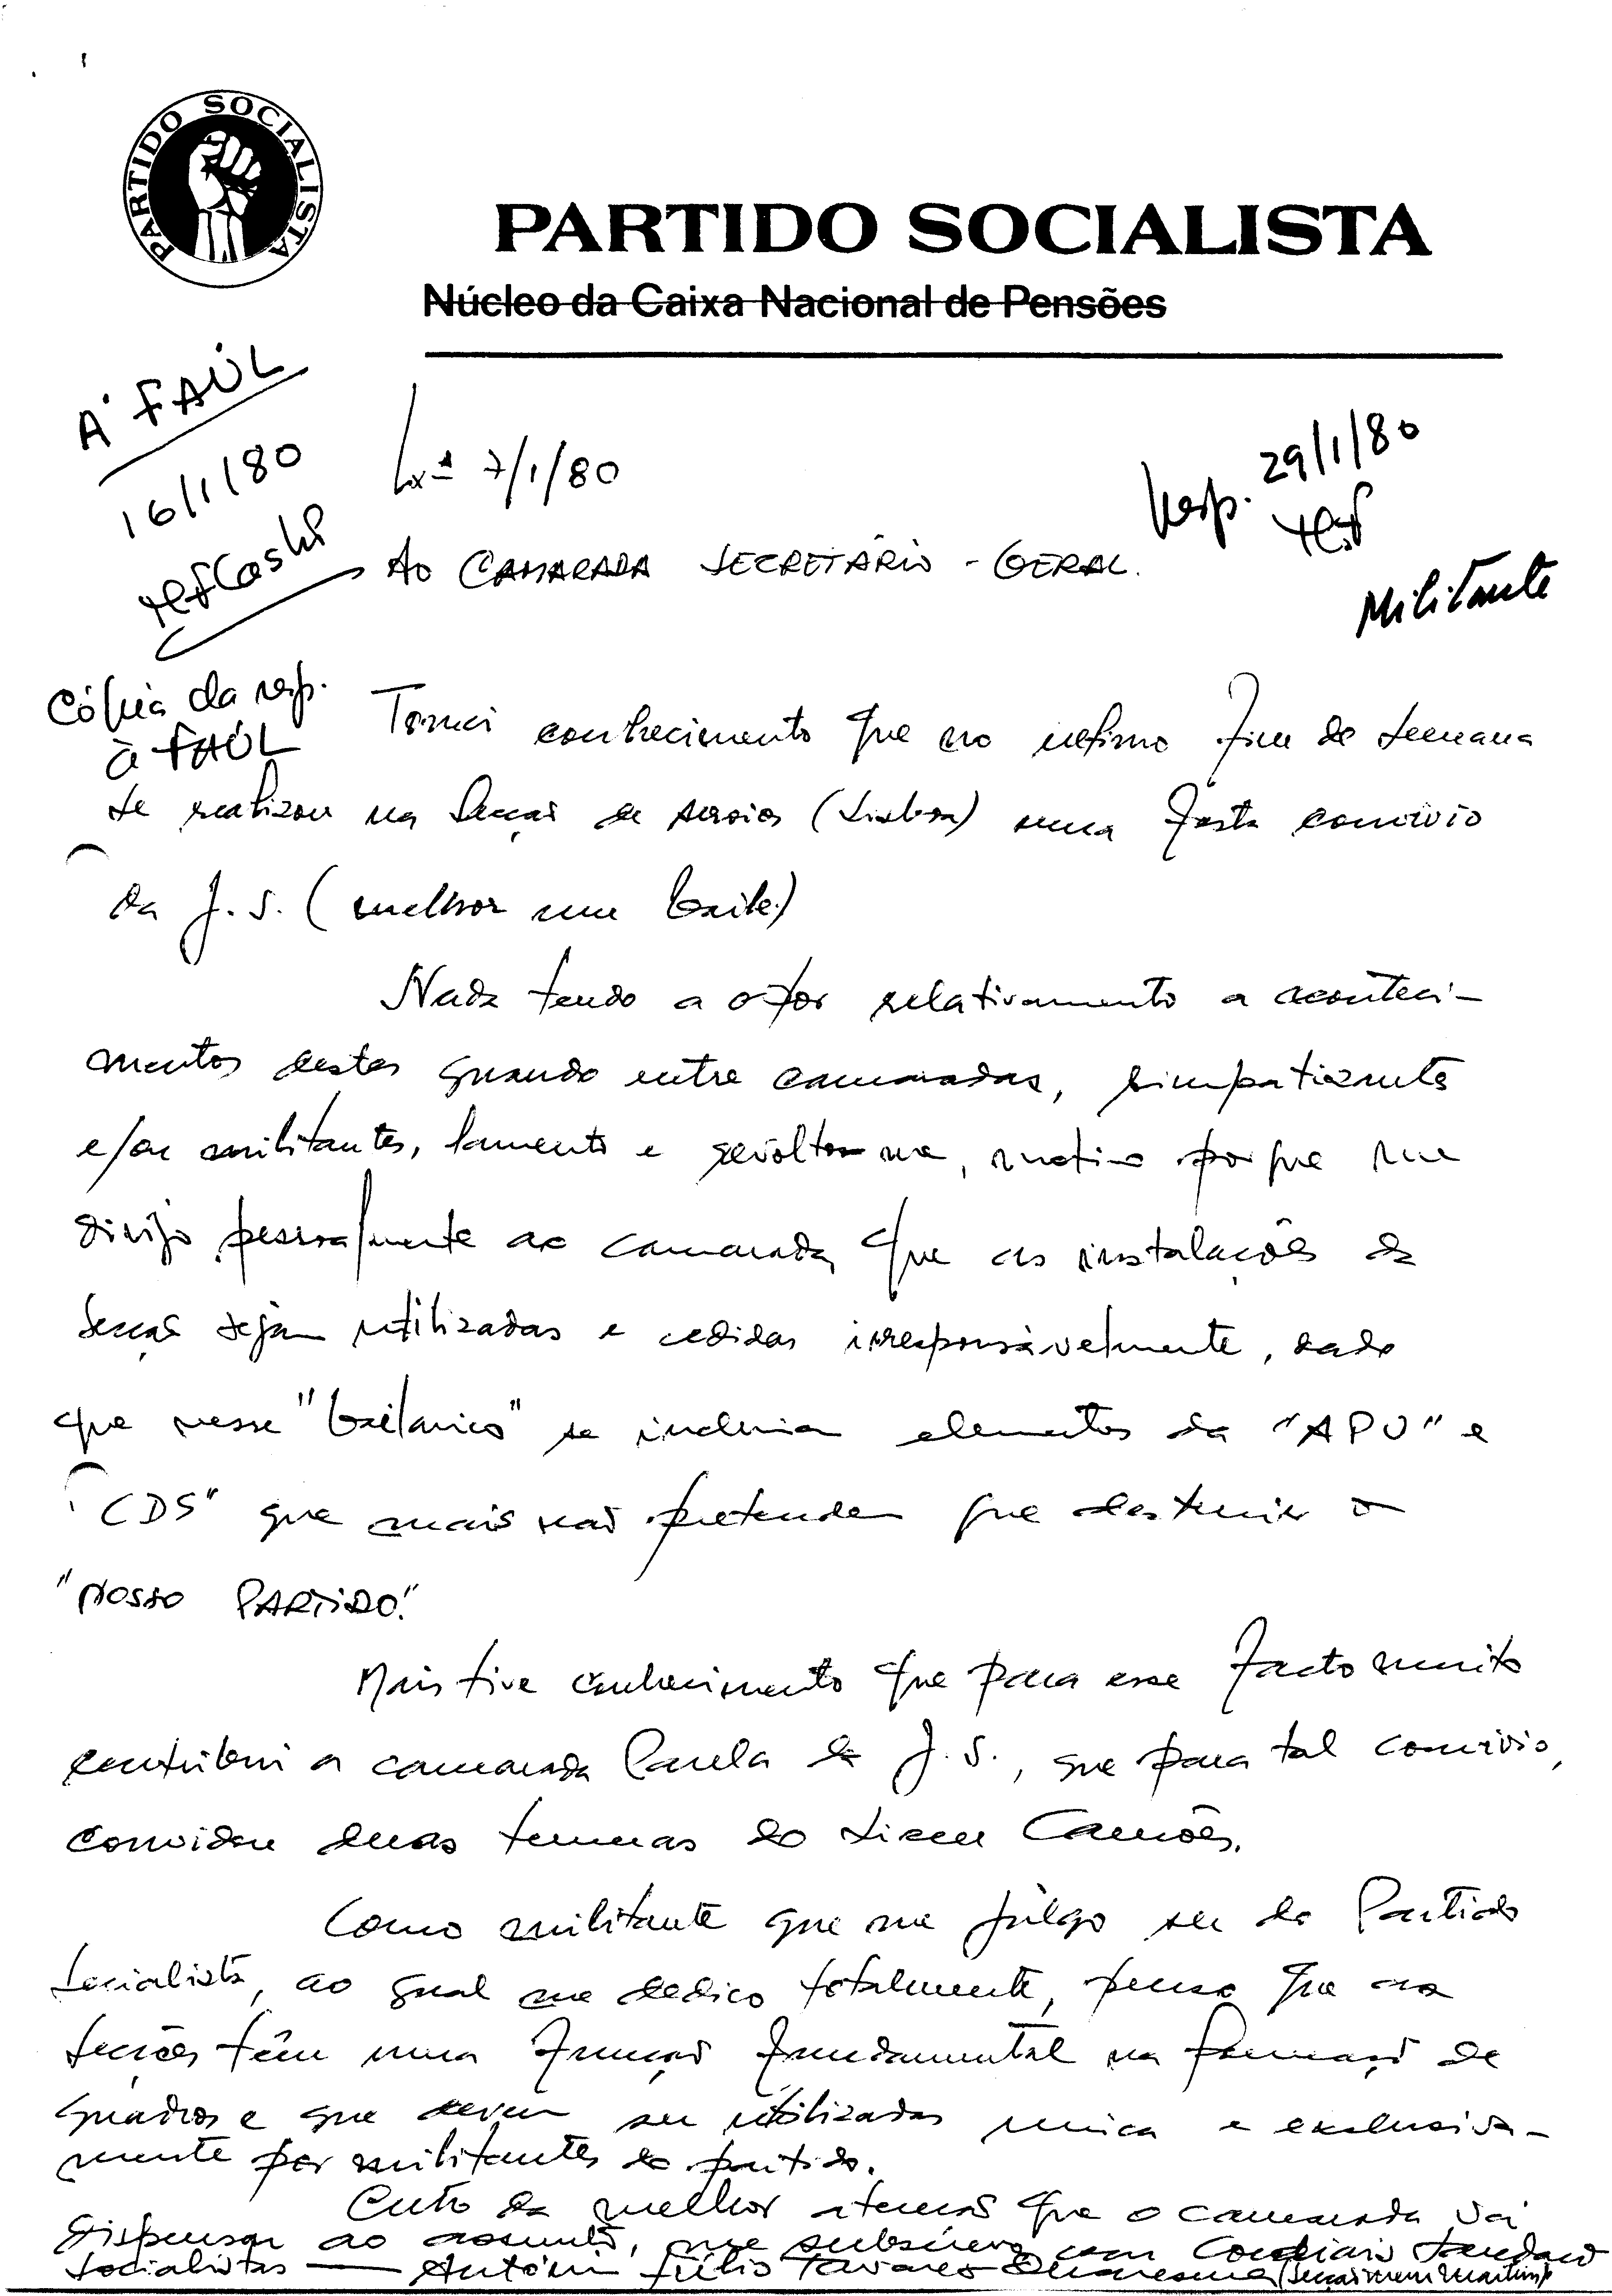 PARTIDO SOCIALISTA
PARTIDO SOCIALISTA
Núcleo da Caixa Nacional de Pensões
À FAUL
16/1/80
Lxª 7/1/80
Resp. 29/1/80
Militante
Ao CAMARADA SECRETÁRIO-GERAL.
Cópia da resp.
à FAUL
Tomei conhecimento que no ultimo fim de semana
se realizou na Secção de Arroios (Lisboa) uma festa convivio
da J.S. (melhor um baile)
Nada tendo a opor relativamente a aconteci-
mentos destes quando entre camaradas, simpatizantes
e/ou militantes, lamento e revolta-me, motivo porque me
dirijo pessoalmente ao camarada, que as instalações da
Secção sejam utilizadas e cedidas irresponsávelmente, dado
que nesse "bailarico" se incluia elementos da "APU" e
"CDS" que mais não pretendem que destruir o
"NOSSO PARTIDO."
Mais tive conhecimento que para esse facto muito
contribui a camarada Paula da J.S., que para tal convivio,
convidou duas turmas do Liceu Camões.
Como militante que me júlgo ser do Partido
Socialista, ao qual me dedico totalmente, penso que as
Secções têm uma função fundamental na formação de
quadros e que devem ser utilizadas unica e exclusiva-
mente por militantes do partido.
Certo da melhor atenção que o camarada vai
dispensar ao assunto, me subscrevo com Cordiais Saudações
Socialistas — António Júlio Tavares